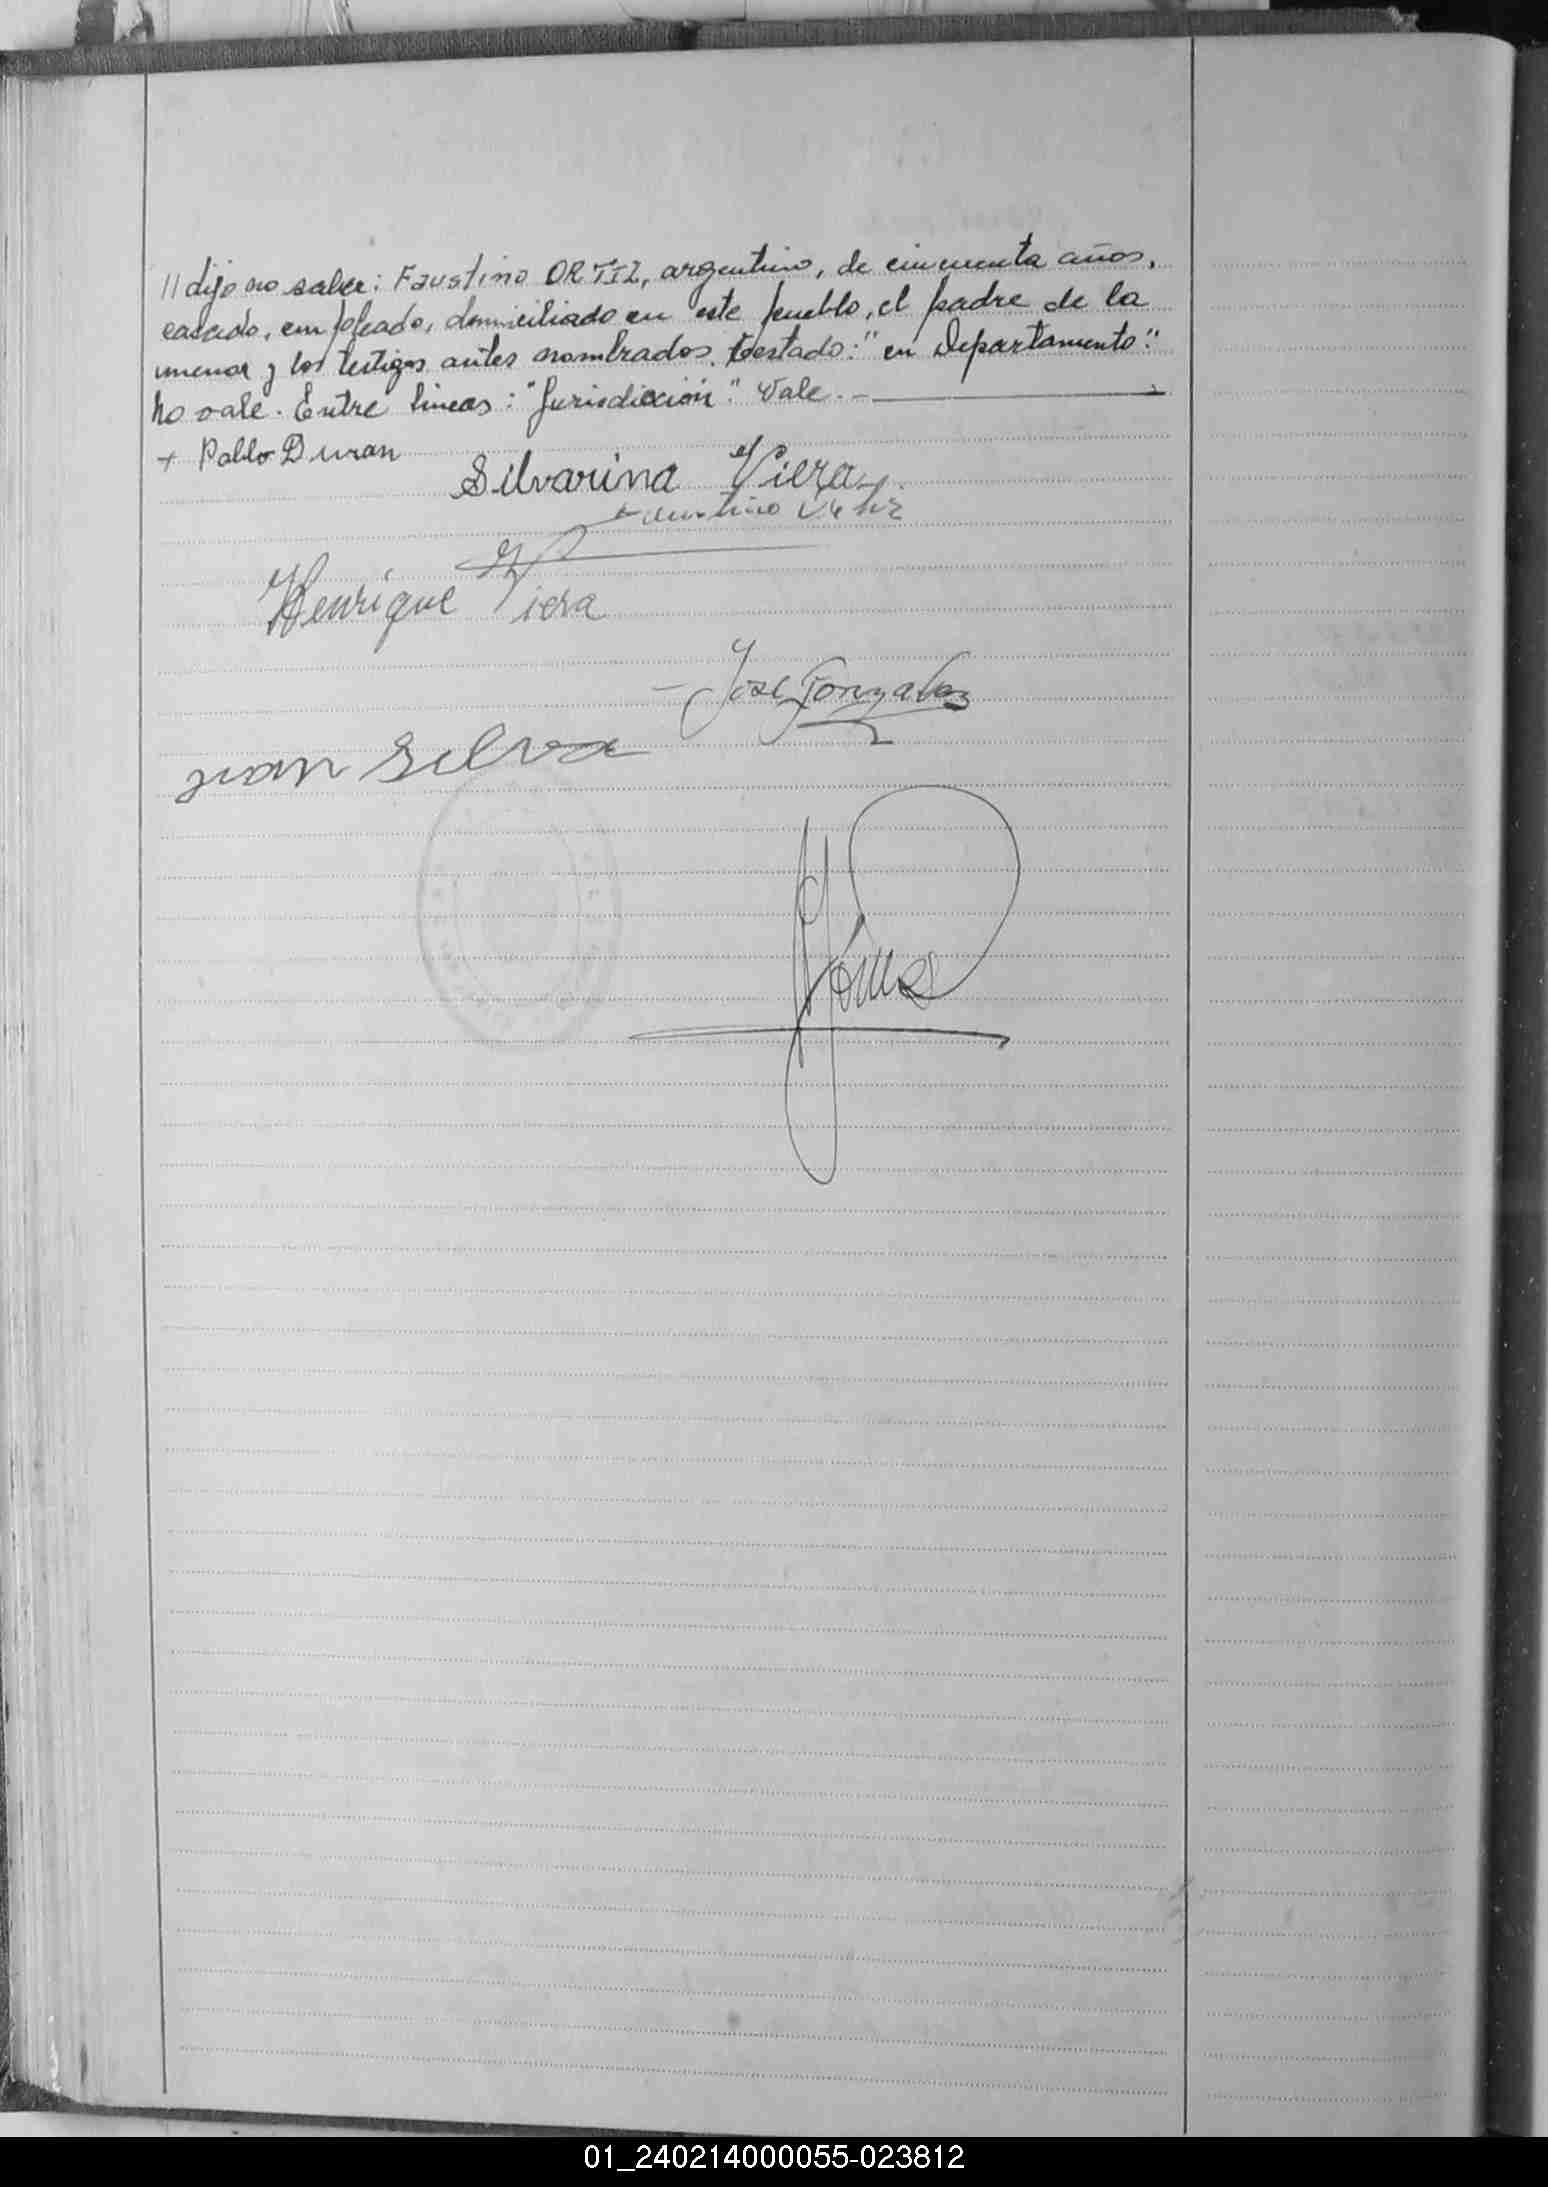 // dijo no saber: Faustino ORTIZ, argentino, de cincuenta años,
casado, empleado, domiciliado en este pueblo, el padre de la
menor y los testigos antes nombrados. Testado: "en Departamento":
No vale. Entre lineas: "Jurisdicción": Vale.
+ Pablo Duran
Silvarina Viera
Faustino Ortiz
Henrique Viera
Jose Gonzalez
Juan Silva
01_240214000055-023812